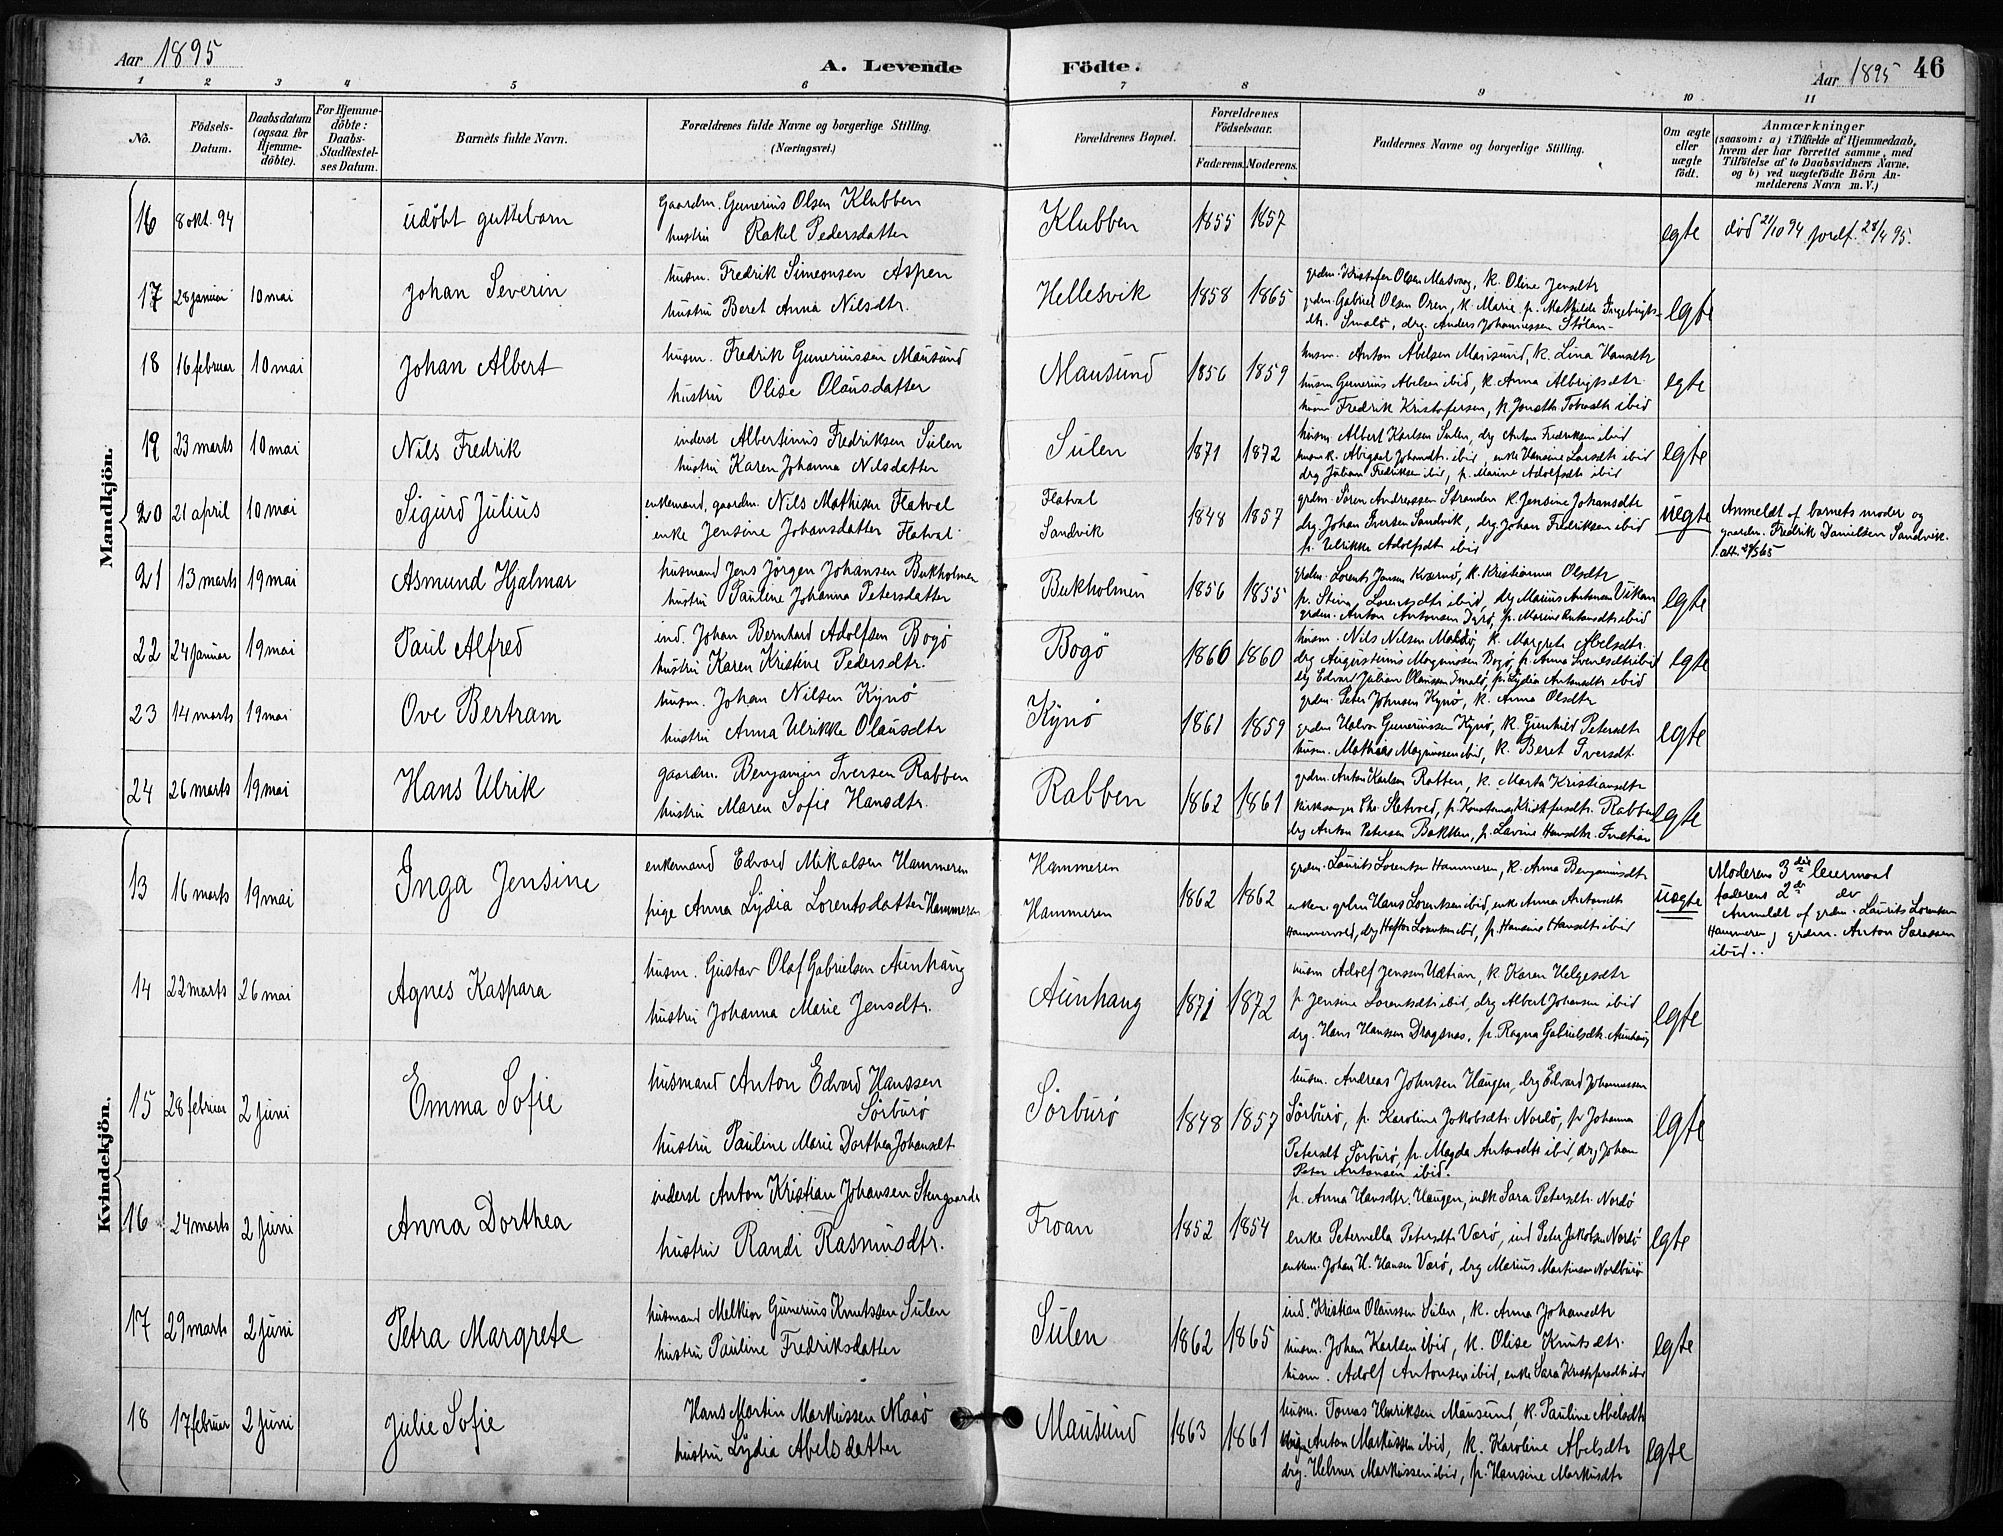 Aar 1895
A. Levende Födte.
Aar 1895
46
1 2 3 4 5 6 7 8 9 10 11
No.
Födsels-Datum.
Daabsdatum (ogsaa for Hjemme-döbte).
For Hjemme-döbte: Daabs-Stadfæstel-ses Datum.
Barnets fulde Navn.
Forældrenes fulde Navne og borgerlige Stilling. (Næringsvei.)
Forældrenes Bopæl.
Forældrenes Födselsaar.
Faderens. Moderens.
Faddernes Navne og borgerlige Stilling.
Om ægte eller uægte födt.
Anmærkninger
(saasom: a) i Tilfælde af Hjemmedaab,
hvem der har forrettet samme, med
Tilföielse af to Daabsvidners Navne.
og b) ved uægtefödte Börn An-
melderens Navn m. V.)
Mandkjön.
16 8 okt. 94 udöbt guttebarn
gaardm. Gunerius Olsen Klubben
hustru Rakel Pedersdatter
Klubben 1855 1857
egte död 21/10 94 jordf. 28/4 95.
17 28 januar 10 mai Johan Severin
husm. Fredrik Simeonsen Aspen
hustru Beret Anna Nilsdtr.
Hellesvik 1858 1865
grdm. Kristofer Olsen Masvaag, k. Oline Jensdtr
grdm. Gabriel Olsen Oren, k. Marie p. Mathilde Ingebrigts-
dtr. Smalö, drg. Anders Johannessen Stölan-
egte
18 16 februar 10 mai Johan Albert
husm. Fredrik Guneriussen Mausund
hustru Olise Olausdatter
Mausund 1856 1859
husm. Anton Abelsen Mausund, k. Lina Hansdtr
husm Gunerius Abelsen ibid, k. Anna Albrigtsdtr.
husm Fredrik Kristofersen, k. Jonetta Tobiasdtr ibid
egte
19 23 marts 10 mai Nils Fredrik
inderst Albertinus Fredriksen Sulen
hustru Karen Johanna Nilsdatter
Sulen 1871 1872
husm. Albert Karlsen Sulen, drg Anton Fredriksen ibid
husm k. Abigael Johansdtr. ibid, enke Hansine Larsdtr ibid
drg Julian Fredriksen ibid, p. Marine Adolfsdtr ibid
egte
20 21 april 10 mai Sigurd Julius
enkemand, gaardm. Nils Mathisen Flatval
enke Jensine Johansdatter Flatval
Flatval
Sandvik
1848 1857
grdm. Soren Andreassen Stranden k. Jensine Johansdtr
drg. Johan Iversen Sandvik, drg Johan Fredriksen ibid
p. Ulrikke Adolfsdtr ibid
uegte
Anmeldt af barnets moder og
gaardm. Fredrik Danielsen Sandvik.
21 13 marts 19 mai Asmund Hjalmar
husmand Jens Jörgen Johansen Bukholmen
hustru Pauline Johanna Petersdatter
Bukholmen 1856 1855
grdm. Lorents Jansen Kvernö, k. Kristianna Olsdtr
p. Stina Lorentsdtr ibid, drg Marius Antonsen Vikan
grdm. Anton Antonsen Dyrö, p. Marine Antonsdtr ibid
egte
22 24 januar 19 mai Paul Alfred
ind. Johan Bernhard Adolfsen Bogö
hustru Karen Kristine Pedersdtr.
Bogö 1860 1860
husm. Nils Nilsen Masö, k. Margrete Abelsdtr.
drg Augustinus Magnussen Bogö, p. Anna Svensdtr ibid
drg Edvard Julian Olaussen Smalö, p. Lydia Antonsdtr ibid
egte
23 14 marts 19 mai Ove Bertram
husm. Johan Nilsen Kynö
hustru Anna Ulrikke Olausdtr
Kynö 1861 1859
grdm. Peter Johnsen Kynö, k. Anna Olsdtr
grdm Halvor Guneriussen Kynö, k. Gunhild Petersdtr
husm. Mathias Magnussen ibid, k. Beret Iversdtr
egte
24 26 marts 19 mai Hans Ulrik
gaardm. Benjamin Iversen Rabben
hustru Maren Sofie Hansdtr.
Rabben 1862 1861
grdm. Anton Karlsen Ratten, k. Marta Kristiansdtr
kirksanger Chr. Sletvold, p. Konstanse Kristofersdtr. Rabben
drg Anton Petersen Bakken, p. Lavine Hansdtr.
egte
Kvindekjön.
13 16 marts 19 mai Inga Jensine
enkemand Edvard Mikalsen Hammeren
pige Anna Lydia Lorentsdatter Hammeren
Hammeren
Hammeren
1862 1862
grdm. Laurits Lorentsen Hammeren, k. Anna Benjaminsdtr
enkem. grdm Hans Lorentsen ibid, enke Anna Antonsdtr
Hammervold, drg Hafton Lorentsen ibid, p. Hansine Hansdtr ibid
uegte
Moderens 3die leiermaal
faderens 2de do
Anmeldt af grdm. Laurits Lorentsen
Hammeren og grdm. Anton Sorensen
ibid..
14 22 marts 26 mai Agnes Kaspara
husm. Gustav Olaf Gabrielsen Aunhaug
hustru Johanna Marie Jensdtr.
Aunhaug 1871 1872
husm Adolf Jensen Udtian, k. Karen Helgesdtr
p. Jensine Lorentsdtr ibid, drg Albert Johansen ibid
drg. Hans Hanssen Dragsnas, p. Ragna Gabrielsdtr. Aunhaug
egte
15 28 februar 2 juni Emma Sofie
husmand Anton Edvard Hanssen
Sörburö
hustru Pauline Marie Dorthea Johansdt
Sörburö 1848 1857
husm. Andreas Johnsen Haugen, drg Edvard Johannessen
Sörburö, p. Karoline Jakobsdtr Nordö, p Johanna
Petersdt Sörburö, p. Magda Antonsdtr ibid, drg Johan
Peter Antonsen ibid.
egte
16 24 marts 2 juni Anna Dorthea
inderst Anton Kristian Johansen Stengaarden
hustru Randi Rasmusdtr.
Froan 1852 1854
p. Anna Hansdtr. Haugen, enk Sara Petersdtr. Nordö
enke Peternella Petersdtr Varö, ind Peter Jakobsen Nordö
enkem. Johan H. Hansen Varö, drg Marius Martinsen Nordburö
egte
17 29 marts 2 juni Petra Margrete
husmand Melkior Gunerius Knutssen Sulen
hustru Pauline Fredriksdatter
Sulen 1862 1865
ind. Kristian Olaussen Sulen, k. Anna Johansdtr
husm. Johan Karlsen ibid, k. Olise Knutsdtr.
husm. Adolf Antonsen ibid, enke Sara Kristofersdtr ibid
egte
18 17 februar 2 juni Julie Sofie
Hans Martin Markussen Maaö
hustru Lydia Abelsdatter
Mausund 1863 1861
husm. Tomas Henriksen Mausund, k. Pauline Abelsdtr
Anton Markussen ibid, k. Karoline Abelsdtr
drg. Helmer Markussen ibid, p. Hansine Markusdtr
egte